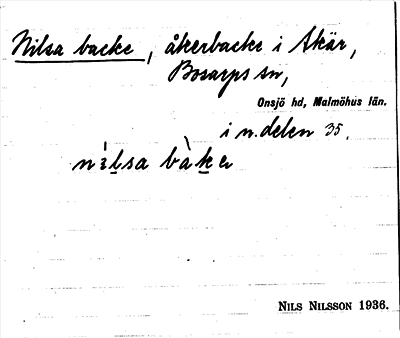 Nilsa backe, åkerbacke i Akär,
Bosarps sn,
Onsjö hd, Malmöhus län.
i n. delen 35.
nìlsa bàkɐ
NILS NILSSON 1936.